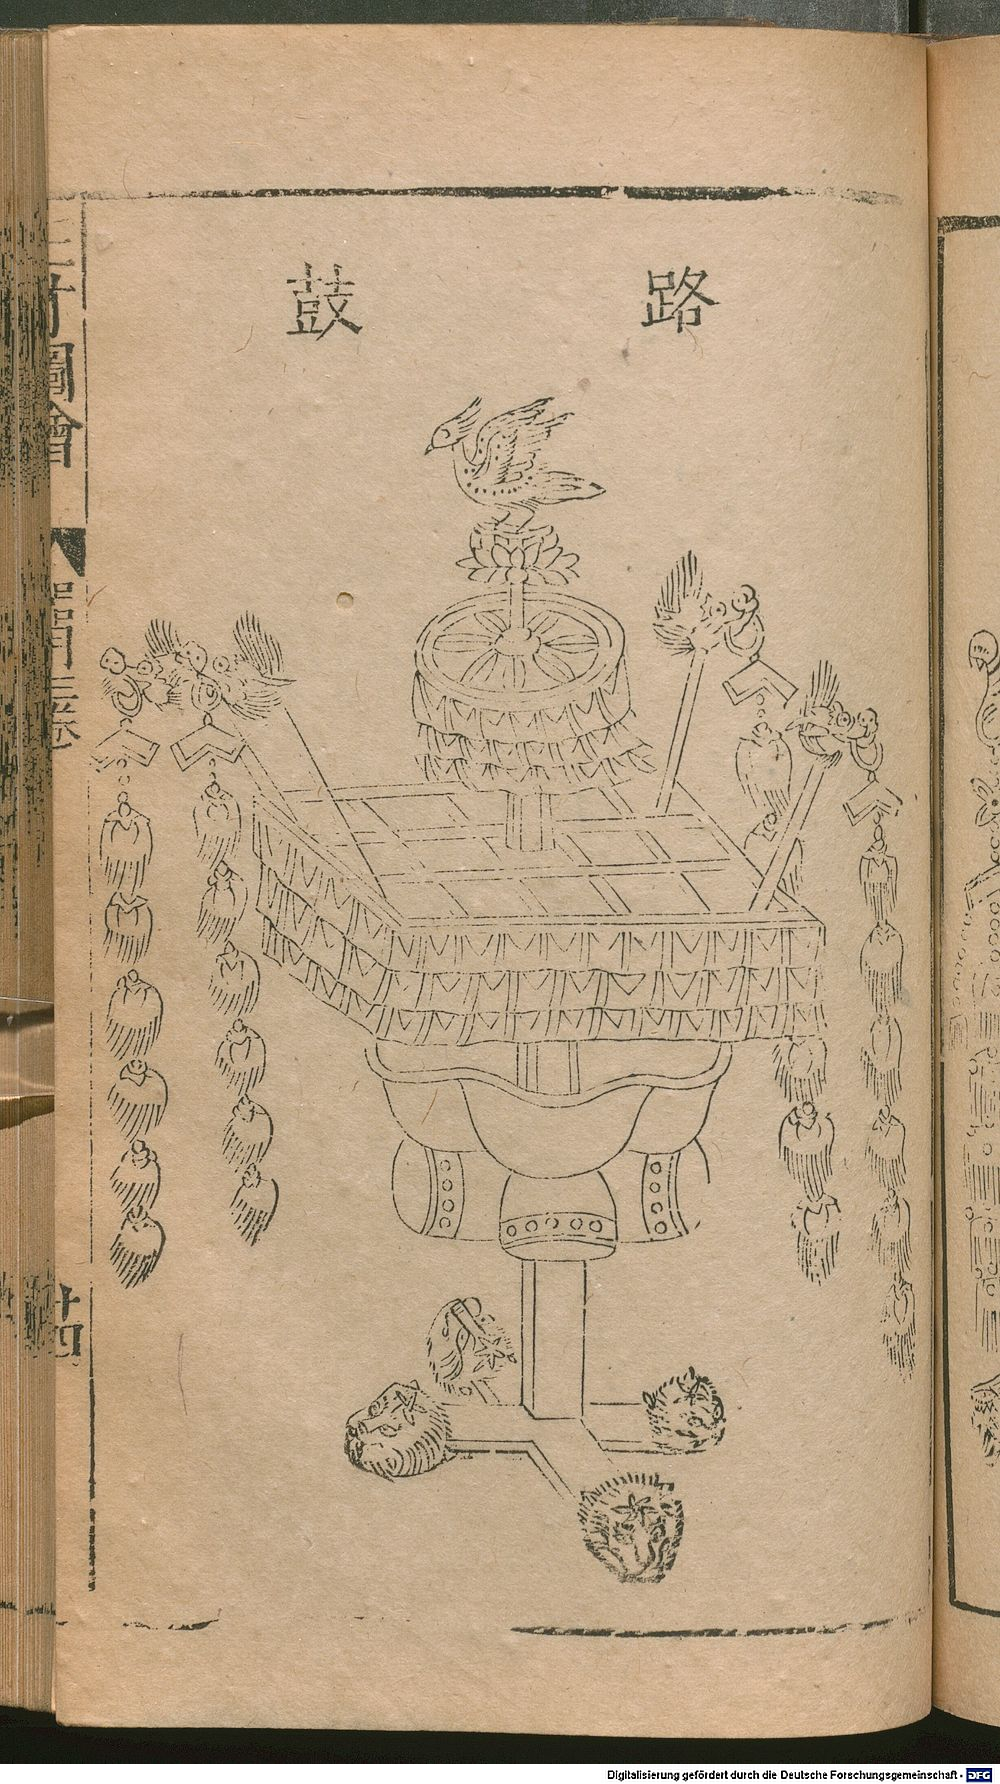 路鼓
三才圖會
器用三卷
廿四
Digitalisierung gefördert durch die Deutsche Forschungsgemeinschaft - DFG